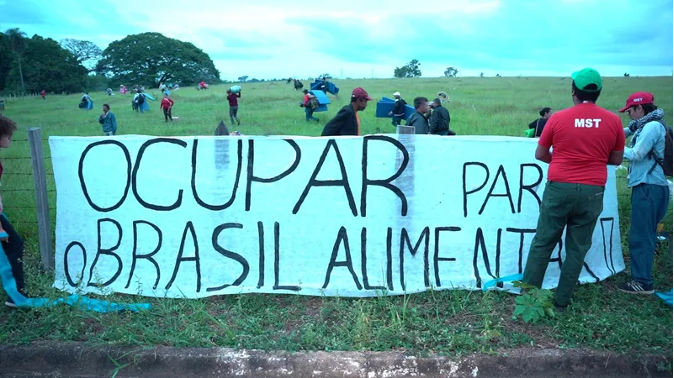 OCUPAR PAR
O BRASIL ALIMENTAR!
MST